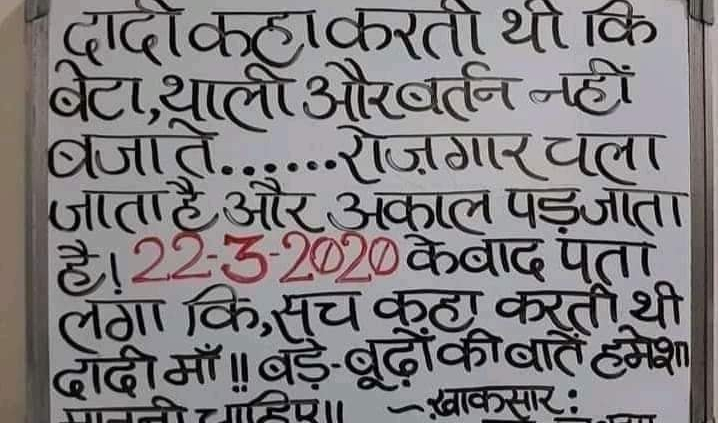 दादी कहा करती थी कि
बेटा, थाली और बर्तन नहीं
बजाते......रोज़गार चला
जाता है और अकाल पड़ जाता
है! 22-3-2020 के बाद पता
लगा कि, सच कहा करती थी
दादी माँ!! बड़े-बूढ़ों की बातें हमेशा
माननी चाहिए!! ~ख़ाकसार: